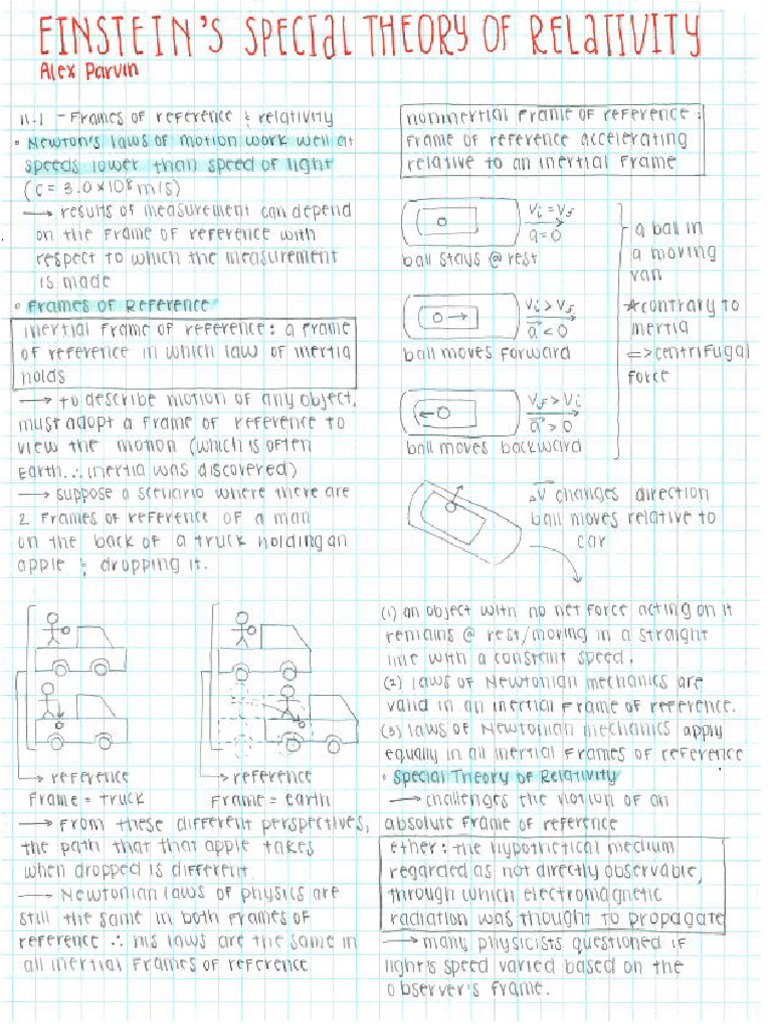 EINSTEIN'S SPECIAL THEORY OF RELATIVITY
Alex Parvin
11.1 - Frames of reference & relativity
• Newton's laws of motion work well at
speeds lower than speed of light
(c = 3.0 × 10⁸ m/s)
→ results of measurement can depend
on the frame of reference with
respect to which the measurement
is made
• Frames of Reference
inertial frame of reference: a frame
of reference in which law of inertia
holds
→ to describe motion of any object,
must adopt a frame of reference to
view the motion (which is often
Earth ∴ inertia was discovered)
→ suppose a scenario where there are
2 frames of reference of a man
on the back of a truck holding an
apple & dropping it.
→ reference
frame = truck
→ reference
frame = earth
→ From these different perspectives,
the path that that apple takes
when dropped is different.
→ Newtonian laws of physics are
still the same in both frames of
reference ∴ his laws are the same in
all inertial frames of reference
noninertial frame of reference:
frame of reference accelerating
relative to an inertial frame
Vi = Vf
a = 0
ball stays @ rest
Vi > Vf
a < 0
ball moves forward
Vf > Vi
a > 0
ball moves backward
a ball in
a moving
van
*contrary to
inertia
=> centrifugal
force
△V changes direction
ball moves relative to
car
(1) an object with no net force acting on it
remains @ rest/moving in a straight
line with a constant speed.
(2) laws of Newtonian mechanics are
valid in an inertial frame of reference.
(3) laws of Newtonian mechanics apply
equally in all inertial frames of reference
• Special Theory of Relativity
→ challenges the notion of an
absolute frame of reference
ether: the hypothetical medium
regarded as not directly observable,
through which electromagnetic
radiation was thought to propagate
→ many physicists questioned if
light's speed varied based on the
observer's frame.